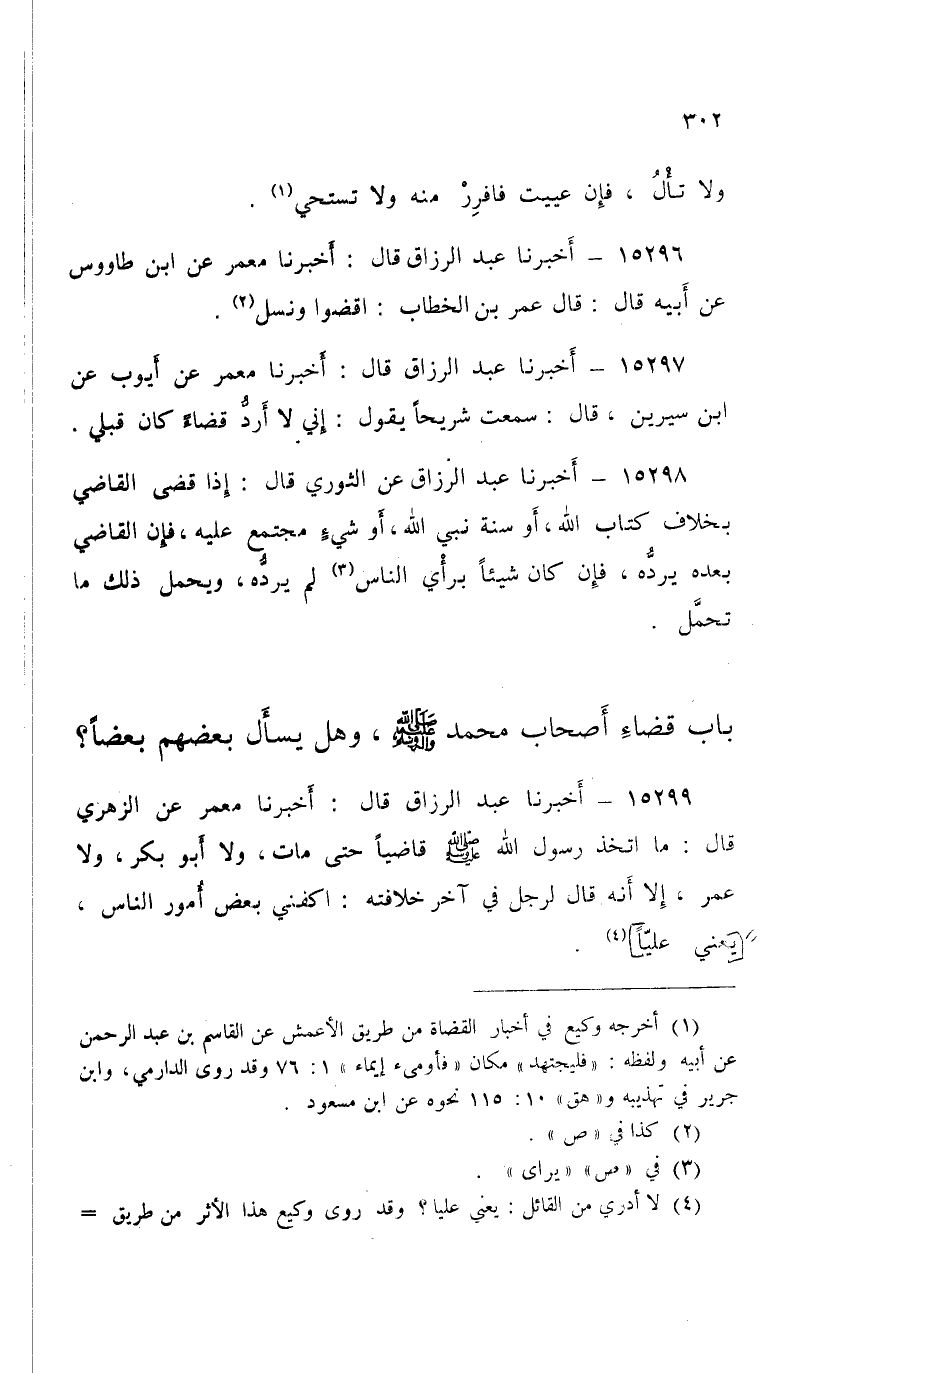 ٣٠٢
ولا تأْلُ ، فإن عييت فافرِرْ منه ولا تستحي(١) .
١٥٢٩٦ – أَخبرنا عبد الرزاق قال : أَخبرنا معمر عن ابن طاووس
عن أَبيه قال : قال عمر بن الخطاب : اقضوا ونسل(٢) .
١٥٢٩٧ – أَخبرنا عبد الرزاق قال : أَخبرنا معمر عن أَيوب عن
ابن سيرين ، قال : سمعت شريحاً يقول : إِني لا أَردُّ قضاءً كان قبلي .
١٥٢٩٨ – أَخبرنا عبد الرزاق عن الثوري قال : إِذا قضى القاضي
بخلاف كتاب الله ، أَو سنة نبي الله ، أَو شيءٍ مجتمع عليه ، فإِن القاضي
بعده يردُّه ، فإِن كان شيئاً برأْي الناس(٣) لم يردُّه ، ويحمل ذلك ما
تحمَّل .
باب قضاءِ أَصحاب محمد ﷺ ، وهل يسأَل بعضهم بعضاً؟
١٥٢٩٩ – أَخبرنا عبد الرزاق قال : أَخبرنا معمر عن الزهري
قال : ما اتخذ رسول الله ﷺ قاضياً حتى مات ، ولا أَبو بكر ، ولا
عمر ، إِلا أَنه قال لرجل في آخر خلافته : اكفني بعض أُمور الناس ،
[يعني عليّاً](٤) .
(١) أخرجه وكيع في أخبار القضاة من طريق الأعمش عن القاسم بن عبد الرحمن
عن أبيه ولفظه : «فليجتهد» مكان «فأومىء إيماء» ١ : ٧٦ وقد روى الدارمي ، وابن
جرير في تهذيبه و«هق» ١٠ : ١١٥ نحوه عن ابن مسعود .
(٢) كذا في «ص» .
(٣) في «ص» «يراى» .
(٤) لا أدري من القائل : يعني عليا ؟ وقد روى وكيع هذا الأثر من طريق =